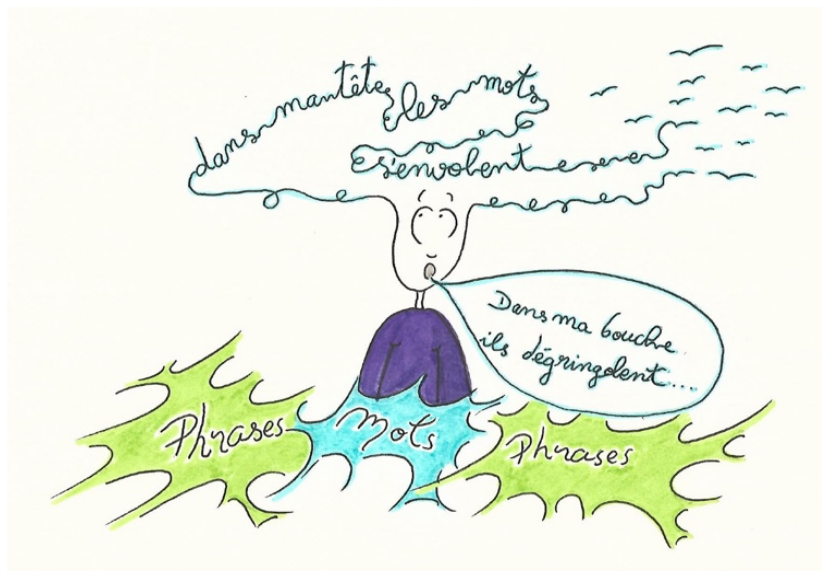 dans mantête les mots
s'envolent
Dans ma bouche..
ils dégringolent....
Phrases
Mots
Phrases